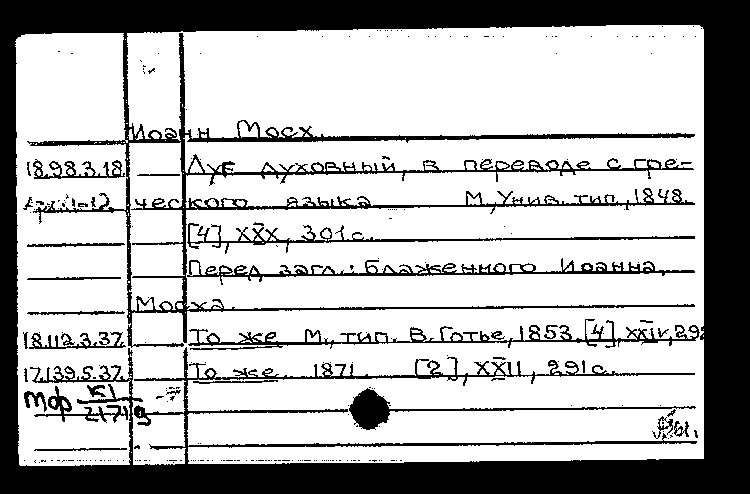 Иоанн Мосх.
18.98.3.18 Луг духовный, в переводе с гре-
ческого языка М., Унив. тип., 1848.
[4], XXX, 301 с.
Перед загл.: блаженного Иоанна,
Мосха.
18.112.3.37. То же М., тип. В. Готье, 1853. [4], XXIV, 292
17.139.5.37. То же. 1871. [2], XXII, 291 с.
Мф К1
2171 д